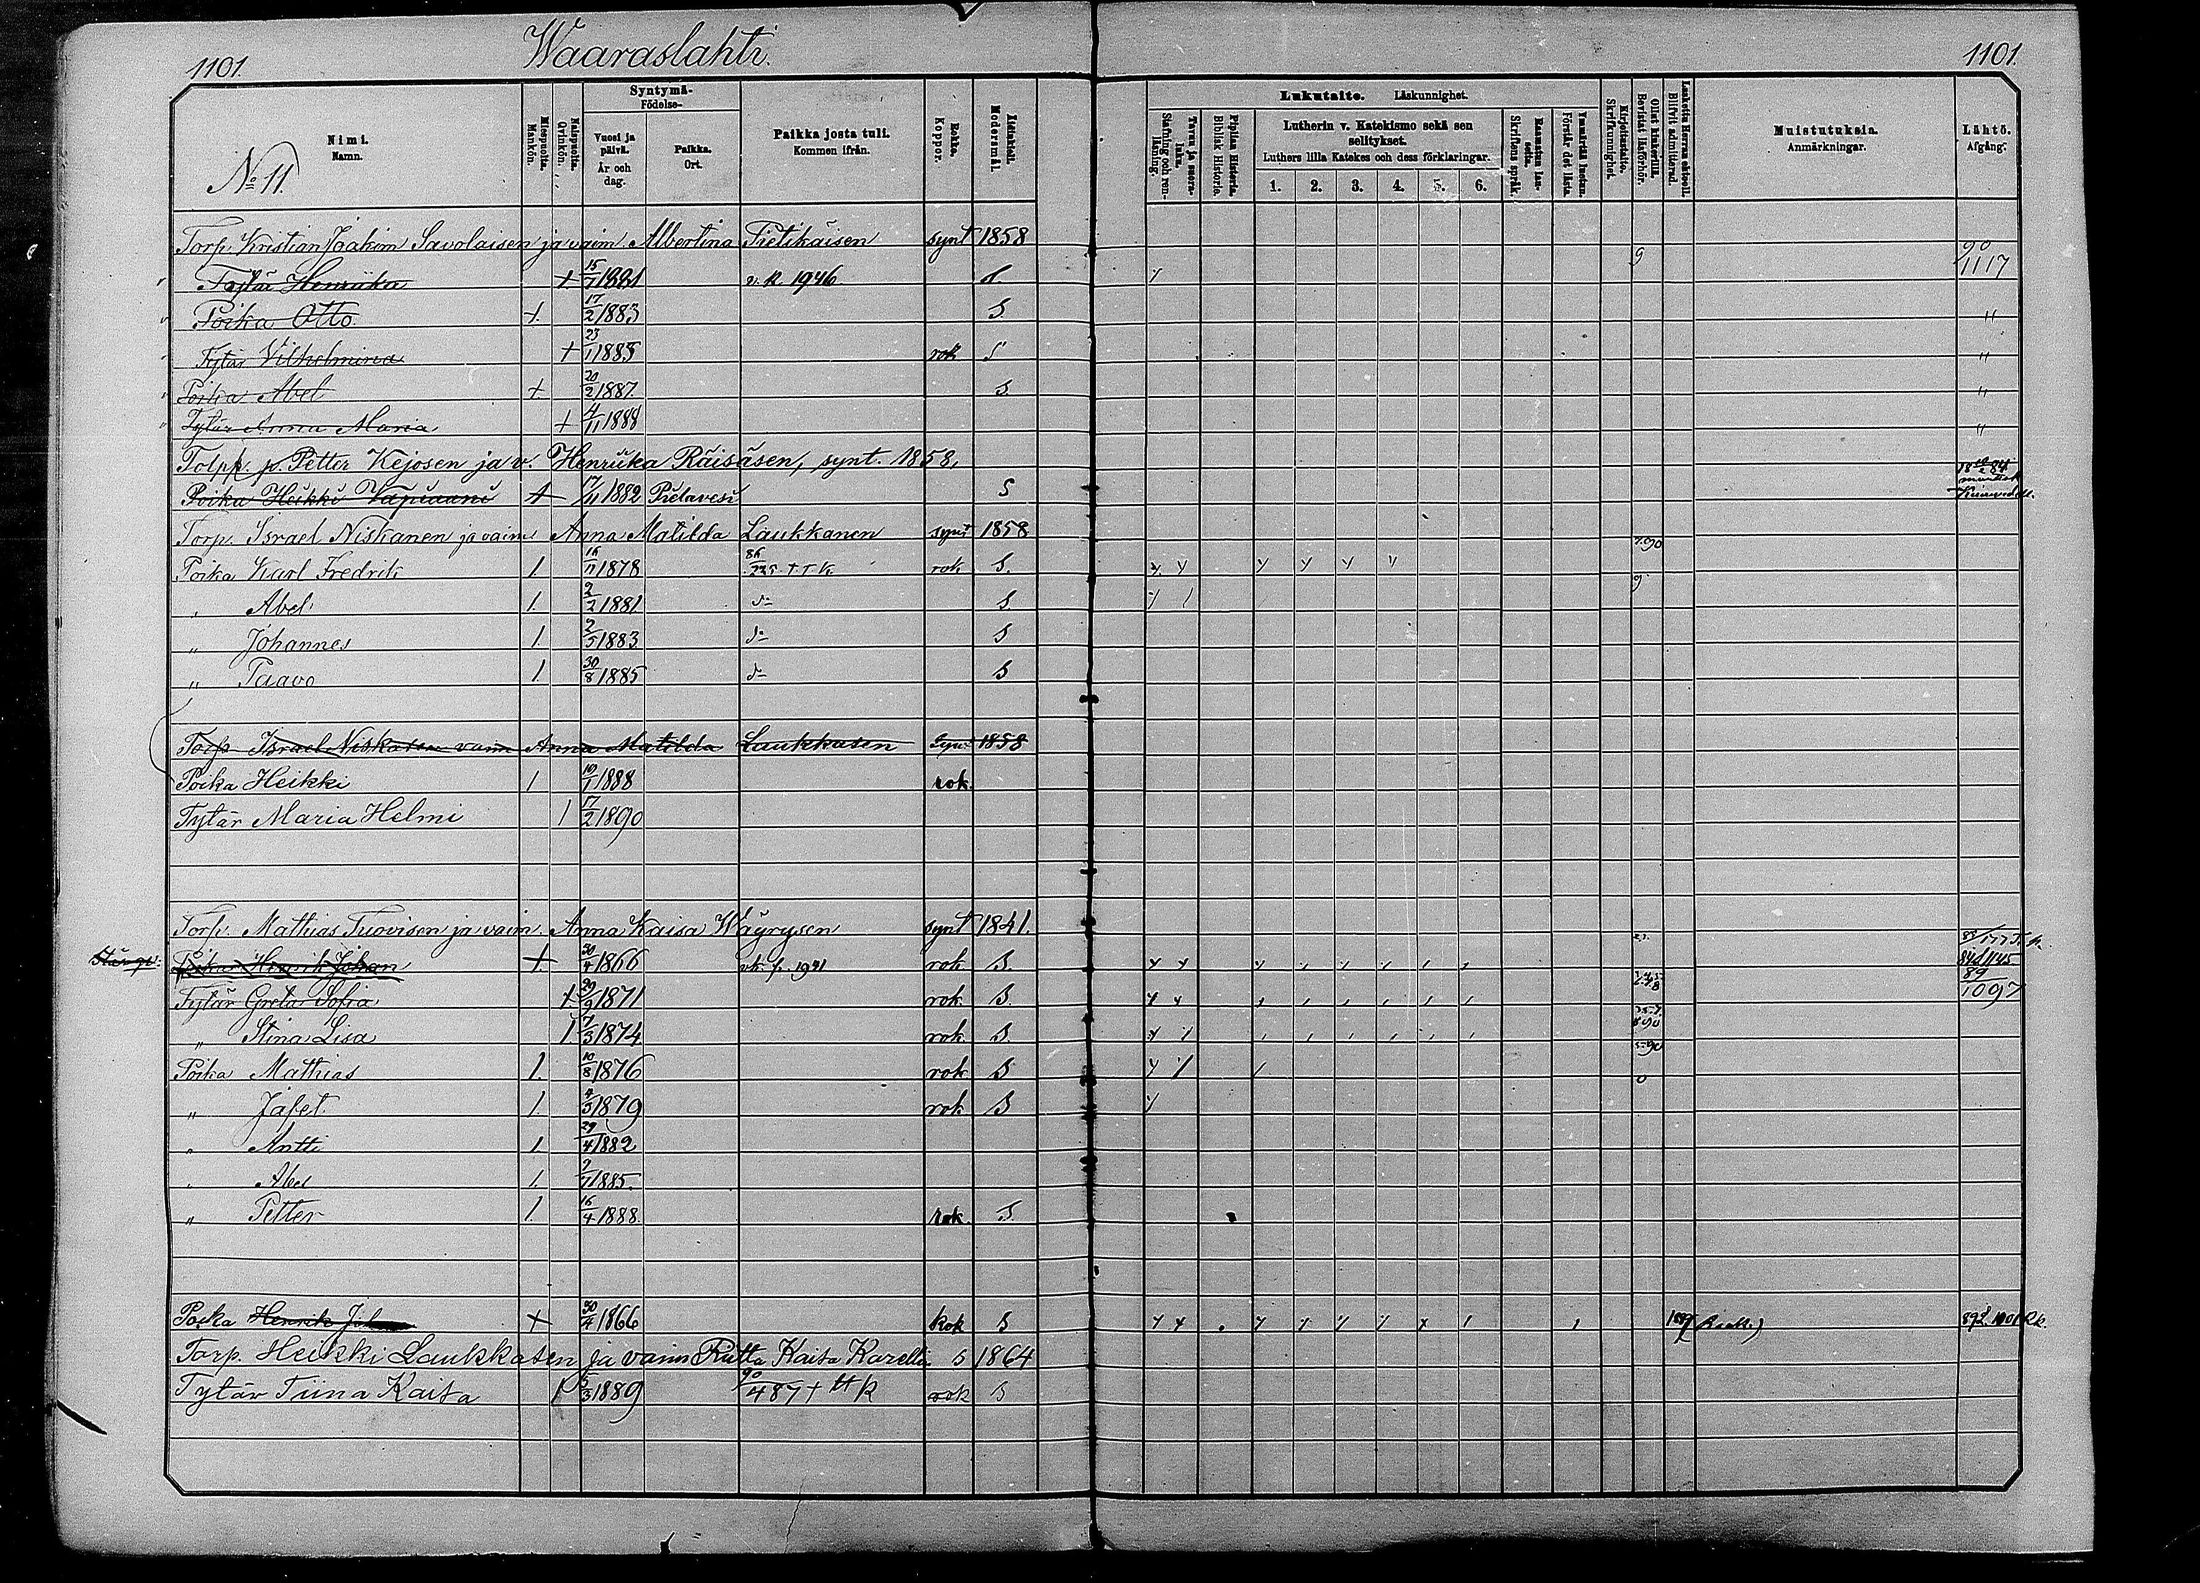 1101. Waaraslahti. 1101.
Nimi. Namn. Miespuolia. Mankön. Naispuolia. Qvinkön. Syntymä- Födelse- Vuosi ja päivä. År och dag. Paikka. Ort. Paikka josta tuli. Kommen ifrån. Rokko. Koppor. Äidinkieli. Modersmål.
Lukutaito. Läskunnighet. Tavaa ja suora-luku. Stafning och ren-läsning. Piplian Historia. Biblisk Historie. Lutherin v. Katekismo sekä sen selitykset. Luthers lilla Katekes och dess förklaringar. 1. 2. 3. 4. 5. 6. Raamatun lau-seita. Skriftens språk. Ymmärtää lu'etun. Förstår det lästa. Kirjoitustaito. Skrifkunnighet. Ollut kinkerillä. Bevistat läsförhör. Laskettu Herran ehtooll. Blifvit admitterad. Muistutuksia. Anmärkningar. Lähtö. Afgång.
No 11.
Torp. Kristian Joakim Savolaisen ja vaim Albertina Pietikäisen synt 1858
Tytär Henriika + 15/1 1881 v. k. 1946. y 9 90/1117
Poika Otto +. 17/2 1883 S. "
Tytär Vilhelmina + 23/1 1885 rok S "
Poika Abel + 20/2 1887. S. "
Tytär Anna Maria + 4/11 1888 "
Petter Kejosen ja v. Henriika Räisäsen, synt. 1858.
Poika Heikki Vapriaani + 17/11 1882 Pielavesi S
Torp. Israel Niskanen ja vaim Anna Matilda Laukkanen synt 1858
Poika Karl Fredrik 1. 16/11 1878 86/225 + T. K. rok S. y y y y y y 7.90
" Abel 1. 2/2 1881. d:o S 9
" Johannes 1. 2/5 1883. d:o S
" Paavo 1. 30/8 1885 d:o S
Torp Israel Niskasen vaim Anna Matilda Laukkasen Synt 1858
Poika Heikki 1 10/1 1888 rok.
Tytär Maria Helmi 1 17/2 1890
Torp. Mathias Tuovisen ja vaim. Anna Kaisa Wäyrysen synt 1841.
Poika Henrik Johan + 30/4 1866 vk. f. 1941 rok S. y y
Tytär Greta Sofia + 29/9 1871 rok S. y y 89/1097
" Stina Lisa 1 7/3 1874 rok. S.
Poika Mathias 1. 10/8 1876 rok S y 1 5-90
" Jafet 1. 4/3 1879 rok S y 0
" Antti 1 29/4 1882
" Abel 1. 7/1 1885.
" Petter 1. 16/4 1888. rok. S.
Poika Henrik + 30/4 1866 kok S y y
Torp. Heikki Laukkasen ja vaim Riitta Kaisa Karell s 1864
Tytär Tiina Kaisa 1 5/3 1889 90/487 + tt k rok S